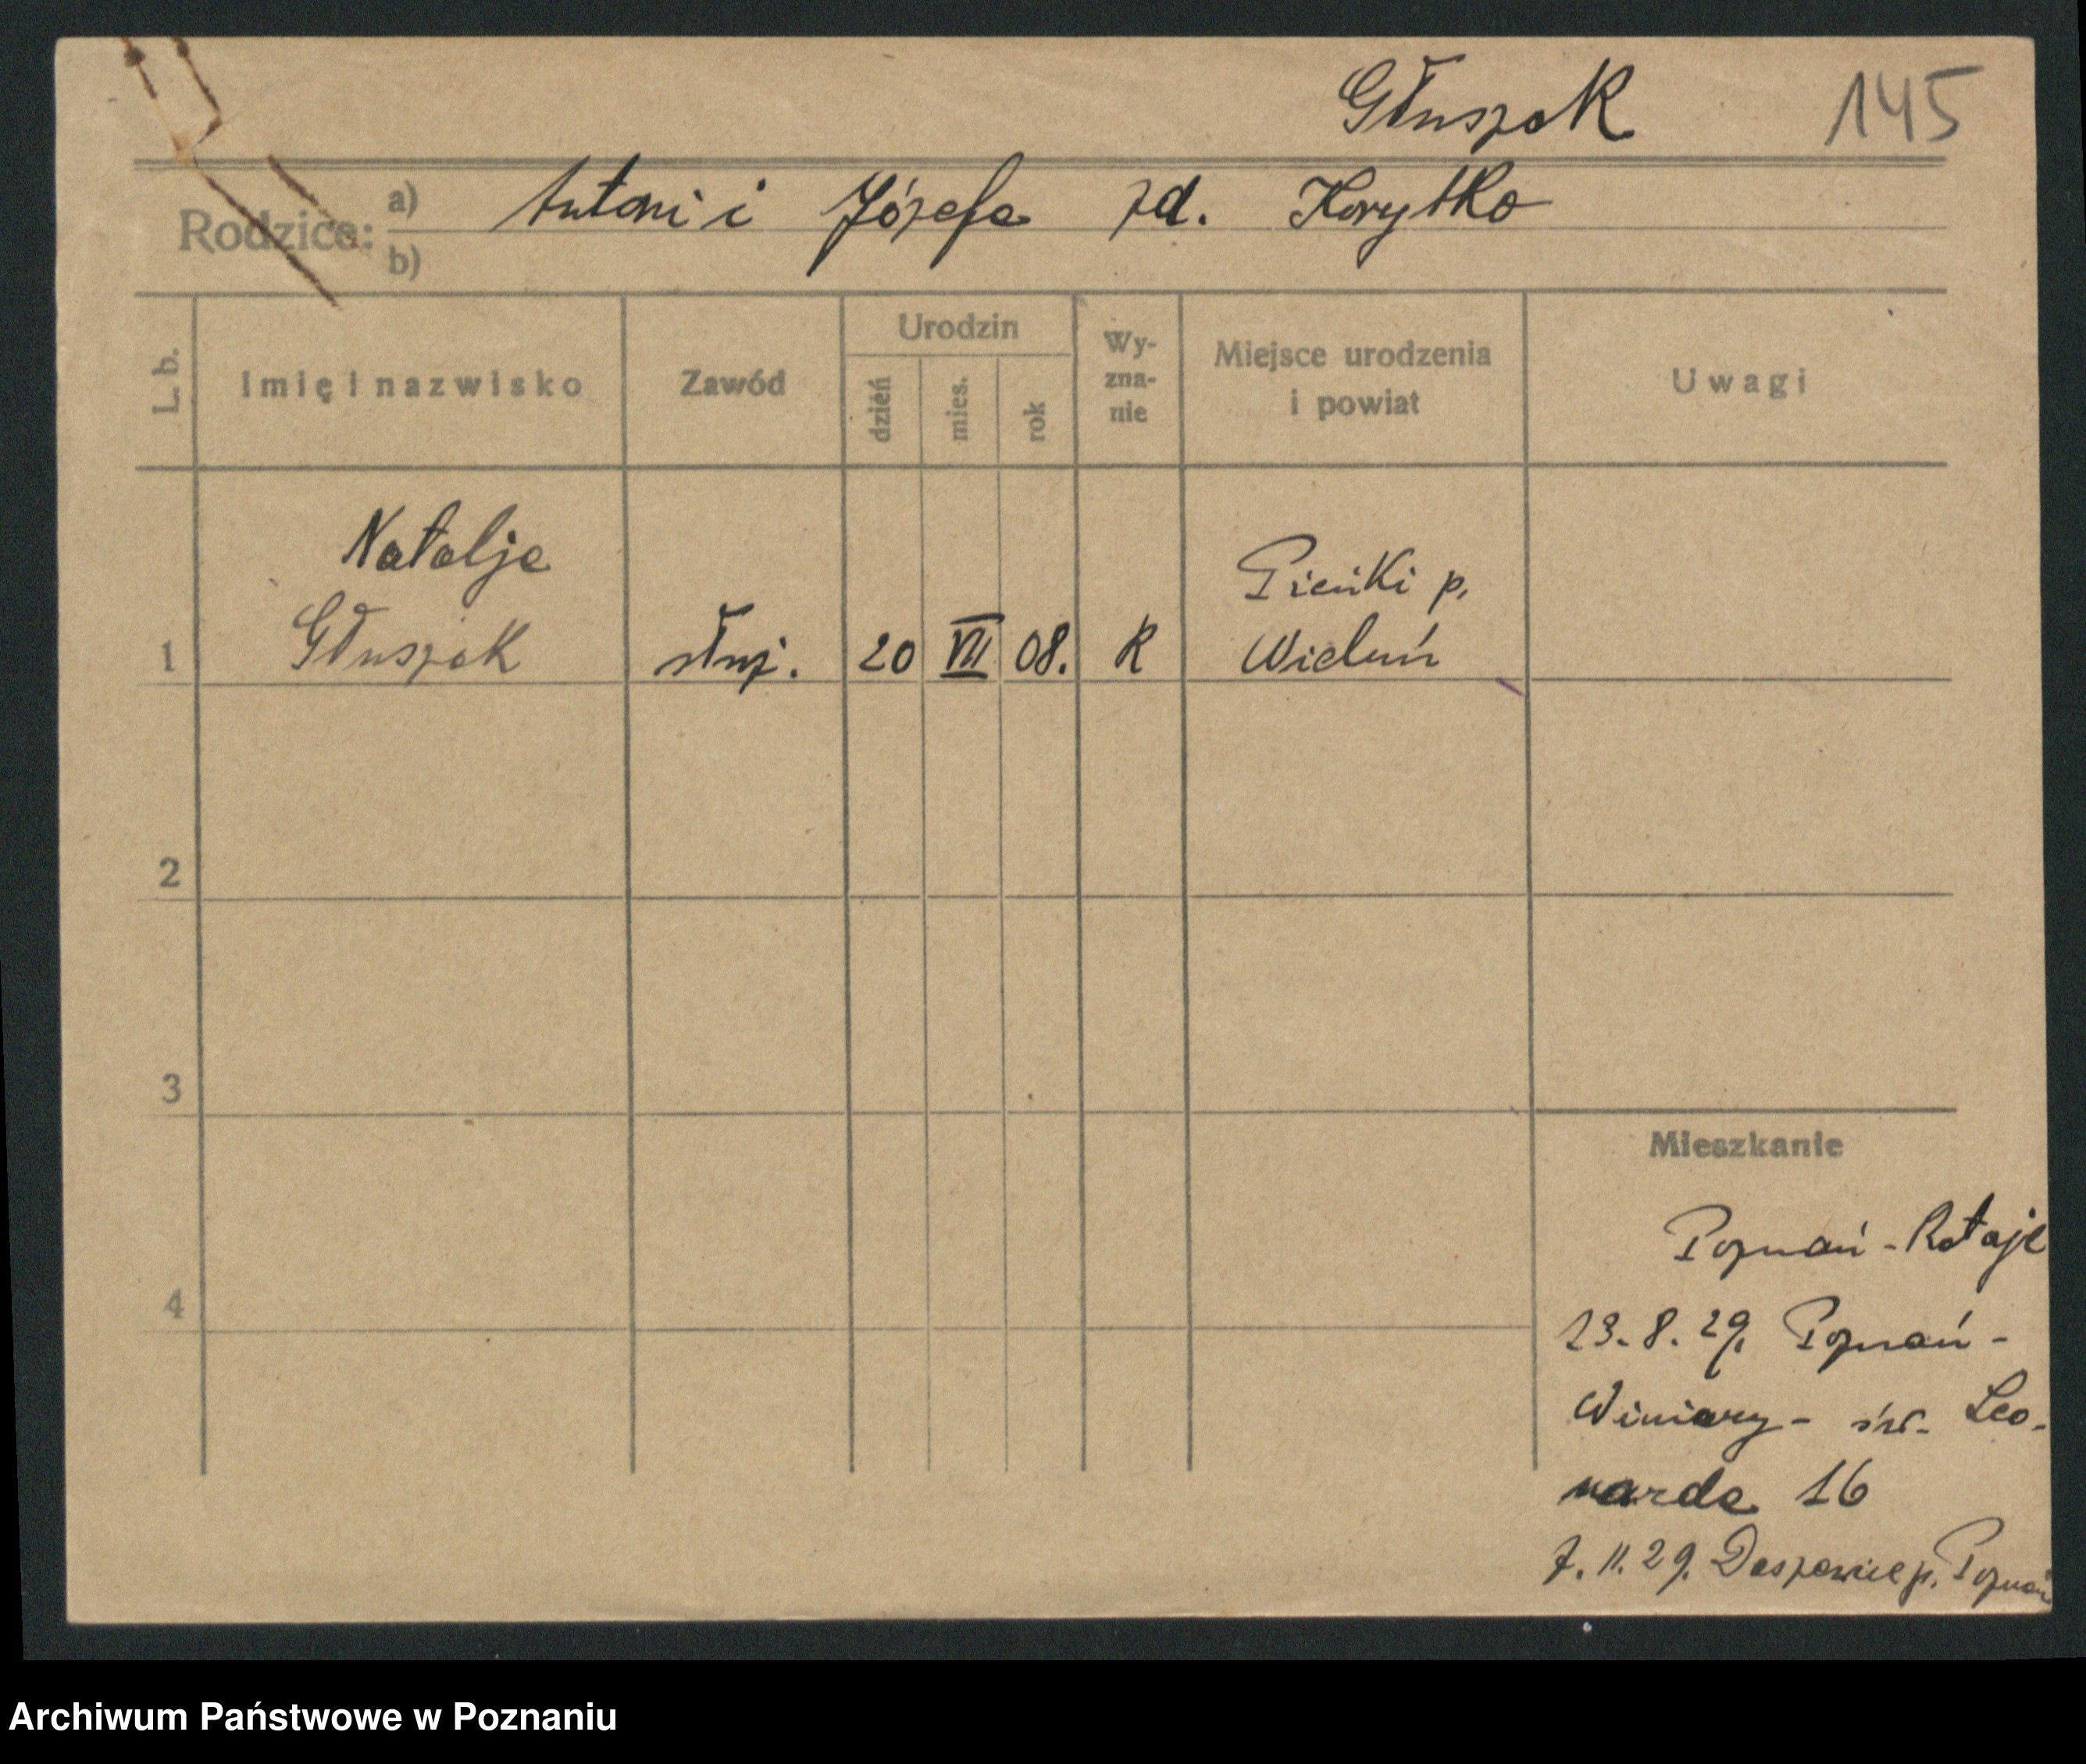 Głuszak 145
Rodzice: a) Antoni i Józefa zd. Korytko
b)
L. b. Imię i nazwisko Zawód Urodzin dzień mies. rok Wy-zna-nie Miejsce urodzenia i powiat Uwagi
Natalja
Głuszak
1 służ. 20 VII 08. R
Pieńki p.
Wieluń
2
3
4
Mieszkanie
Poznań - Rataje
23.8.29. Poznań -
Winiary - św. Leo-
narda 16
7.11.29. p. Poznań
Archiwum Państwowe w Poznaniu